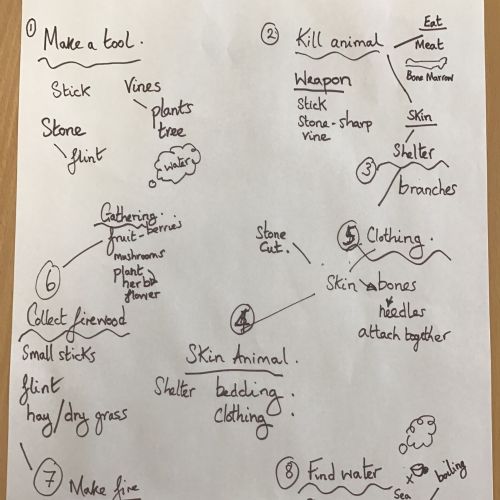 1 Make a tool.
Stick
Vines
plants
tree
Stone
flint
water
2 Kill animal
Eat
Meat
Bone Marrow
Weapon
Stick
Stone - sharp
vine
Skin
Shelter
3
branches
Gathering.
fruit - berries
mushrooms
plant
herbs
flower
Stone
Cut.
5 Clothing.
Skin
bones
needles
attach together
6
Collect firewood
Small sticks
flint
hay/dry grass
4
Skin Animal.
Shelter bedding.
Clothing.
7 Make fire
8 Find water
boiling
Sea